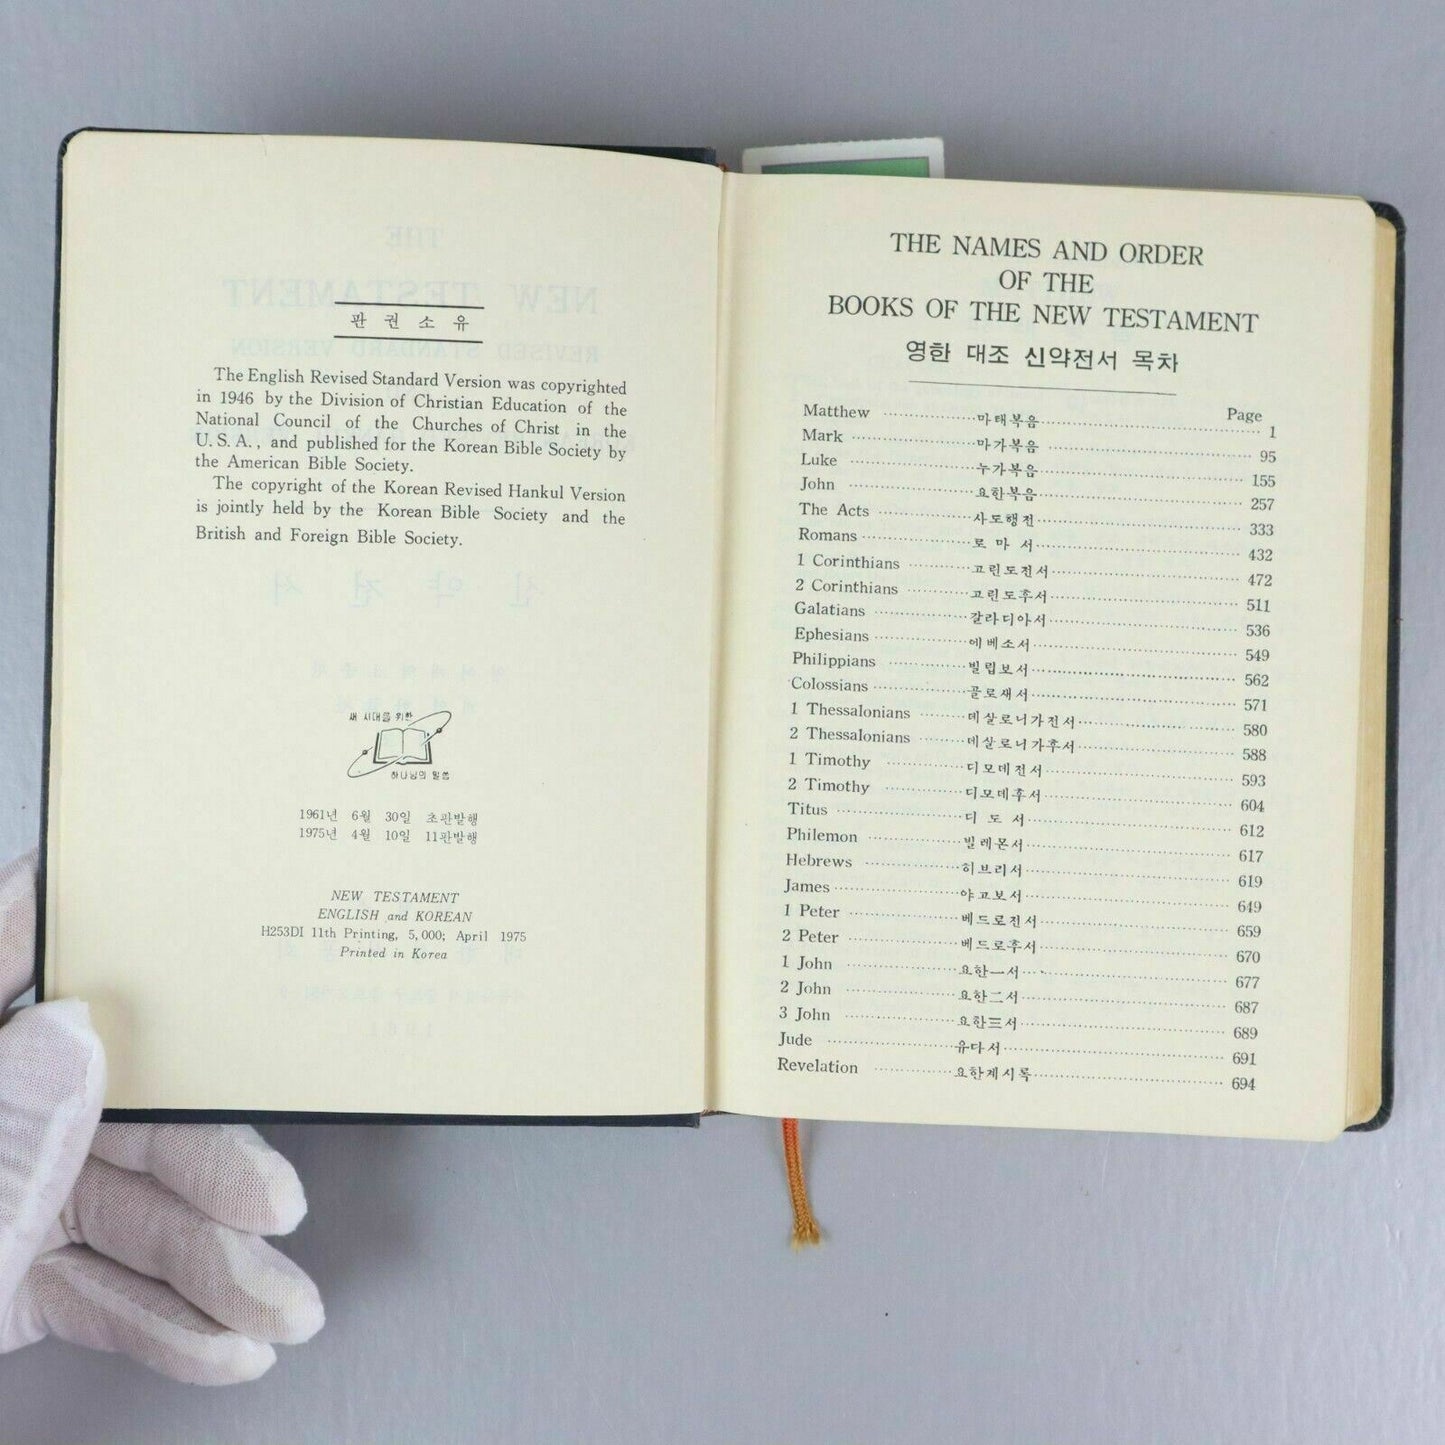 판 권 소 유
The English Revised Standard Version was copyrighted
in 1946 by the Division of Christian Education of the
National Council of the Churches of Christ in the
U. S. A., and published for the Korean Bible Society by
the American Bible Society.
The copyright of the Korean Revised Hankul Version
is jointly held by the Korean Bible Society and the
British and Foreign Bible Society.
새 시대를 위한
하나님의 말씀
1961년 6월 30일 초판발행
1975년 4월 10일 11판발행
NEW TESTAMENT
ENGLISH and KOREAN
H253DI 11th Printing, 5,000; April 1975
Printed in Korea
THE NAMES AND ORDER
OF THE
BOOKS OF THE NEW TESTAMENT
영한 대조 신약전서 목차
Page
Matthew ·········· 마태복음 ·········· 1
Mark ·········· 마가복음 ·········· 95
Luke ·········· 누가복음 ·········· 155
John ·········· 요한복음 ·········· 257
The Acts ·········· 사도행전 ·········· 333
Romans ·········· 로 마 서 ·········· 432
1 Corinthians ·········· 고린도전서 ·········· 472
2 Corinthians ·········· 고린도후서 ·········· 511
Galatians ·········· 갈라디아서 ·········· 536
Ephesians ·········· 에베소서 ·········· 549
Philippians ·········· 빌립보서 ·········· 562
Colossians ·········· 골로새서 ·········· 571
1 Thessalonians ·········· 데살로니가전서 ·········· 580
2 Thessalonians ·········· 데살로니가후서 ·········· 588
1 Timothy ·········· 디모데전서 ·········· 593
2 Timothy ·········· 디모데후서 ·········· 604
Titus ·········· 디 도 서 ·········· 612
Philemon ·········· 빌레몬서 ·········· 617
Hebrews ·········· 히브리서 ·········· 619
James ·········· 야고보서 ·········· 649
1 Peter ·········· 베드로전서 ·········· 659
2 Peter ·········· 베드로후서 ·········· 670
1 John ·········· 요한一서 ·········· 677
2 John ·········· 요한二서 ·········· 687
3 John ·········· 요한三서 ·········· 689
Jude ·········· 유다서 ·········· 691
Revelation ·········· 요한계시록 ·········· 694